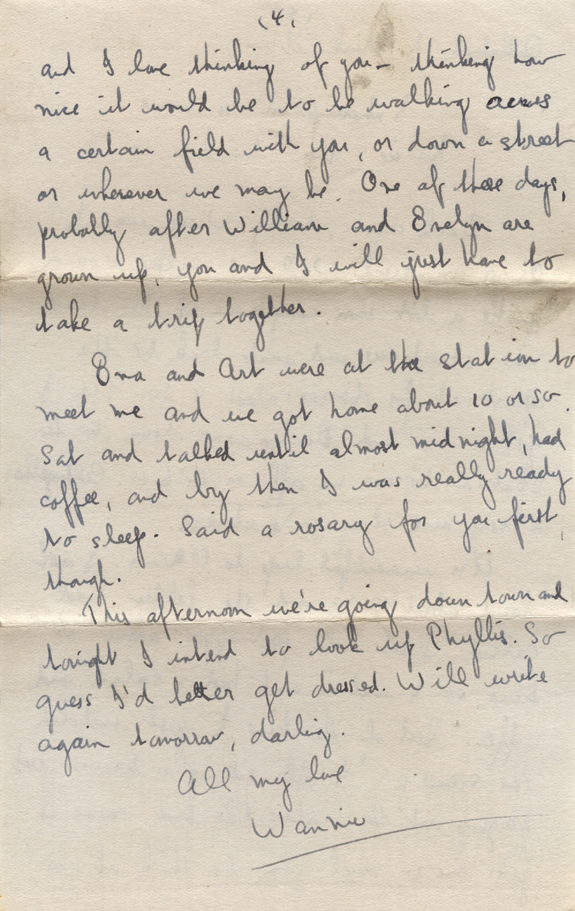 (4)
and I love thinking of you - thinking how
nice it would be to be walking across
a certain field with you, or down a street
or wherever we may be. One of these days,
probably after William and Evelyn are
grown up, you and I will just have to
take a trip together.
Ena and Art were at the station to
meet me and we got home about 10 or so.
Sat and talked until almost midnight, had
coffee, and by then I was really ready
to sleep. Said a rosary for you first,
though.
This afternoon we're going down town and
tonight I intend to look up Phyllis. So
guess I'd better get dressed. Will write
again tomorrow, darling.
All my love
Wannie